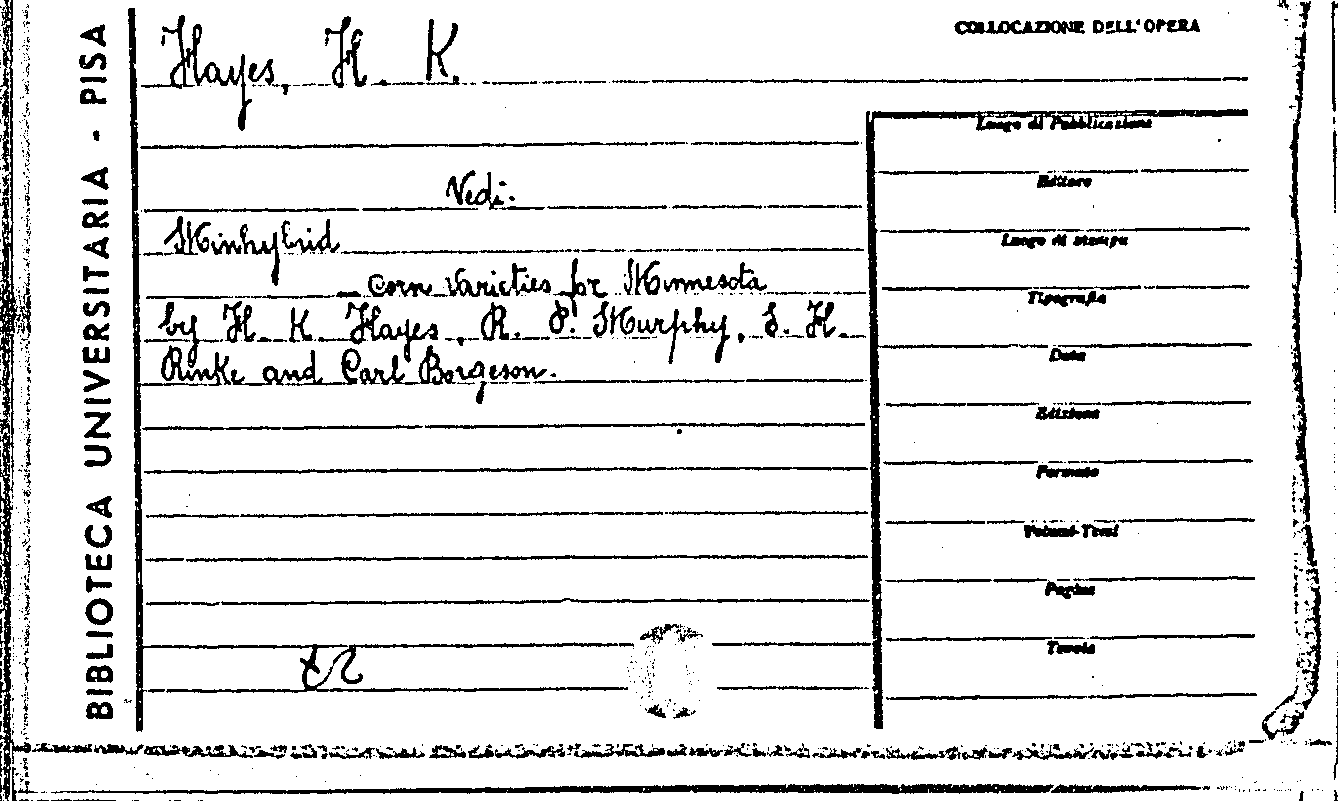 BIBLIOTECA UNIVERSITARIA - PISA
Hayes, H. K.
COLLOCAZIONE DELL'OPERA
Vedi:
Minhybrid
- corn varieties for Minnesota
by H. K. Hayes, R. P. Murphy, E. H.
Rinke and Carl Borgeson.
Luogo di Pubblicazione
Editore
Luogo di stampa
Tipografia
Data
Edizione
Formato
Volumi-Tomi
Pagine
Tavole